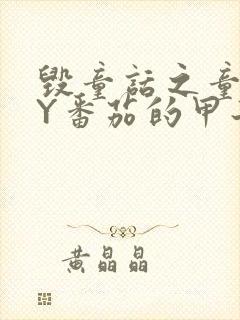 毁童话之童
Y番茄的甲
黄晶晶